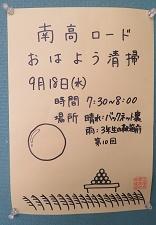 南高ロード
おはよう清掃
9月18日(水)
時間 7:30〜8:00
場所 晴れ:バックネット裏
雨:3年生の靴箱前
第10回